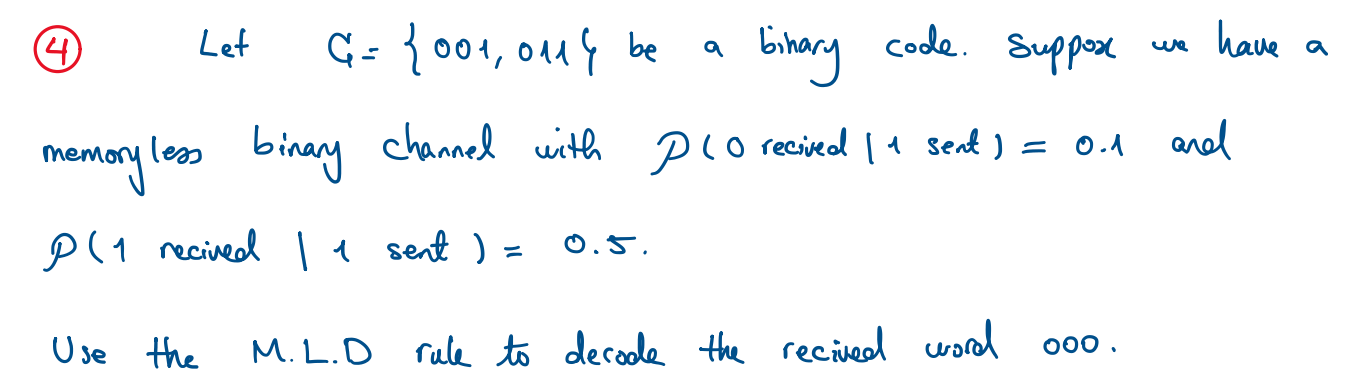 ④ Let C = { 001, 011 } be a binary code. Suppose we have a
memoryless binary channel with P(0 recived | 1 sent) = 0.1 and
P(1 recived | 1 sent) = 0.5.
Use the M.L.D rule to decode the recived word 000.